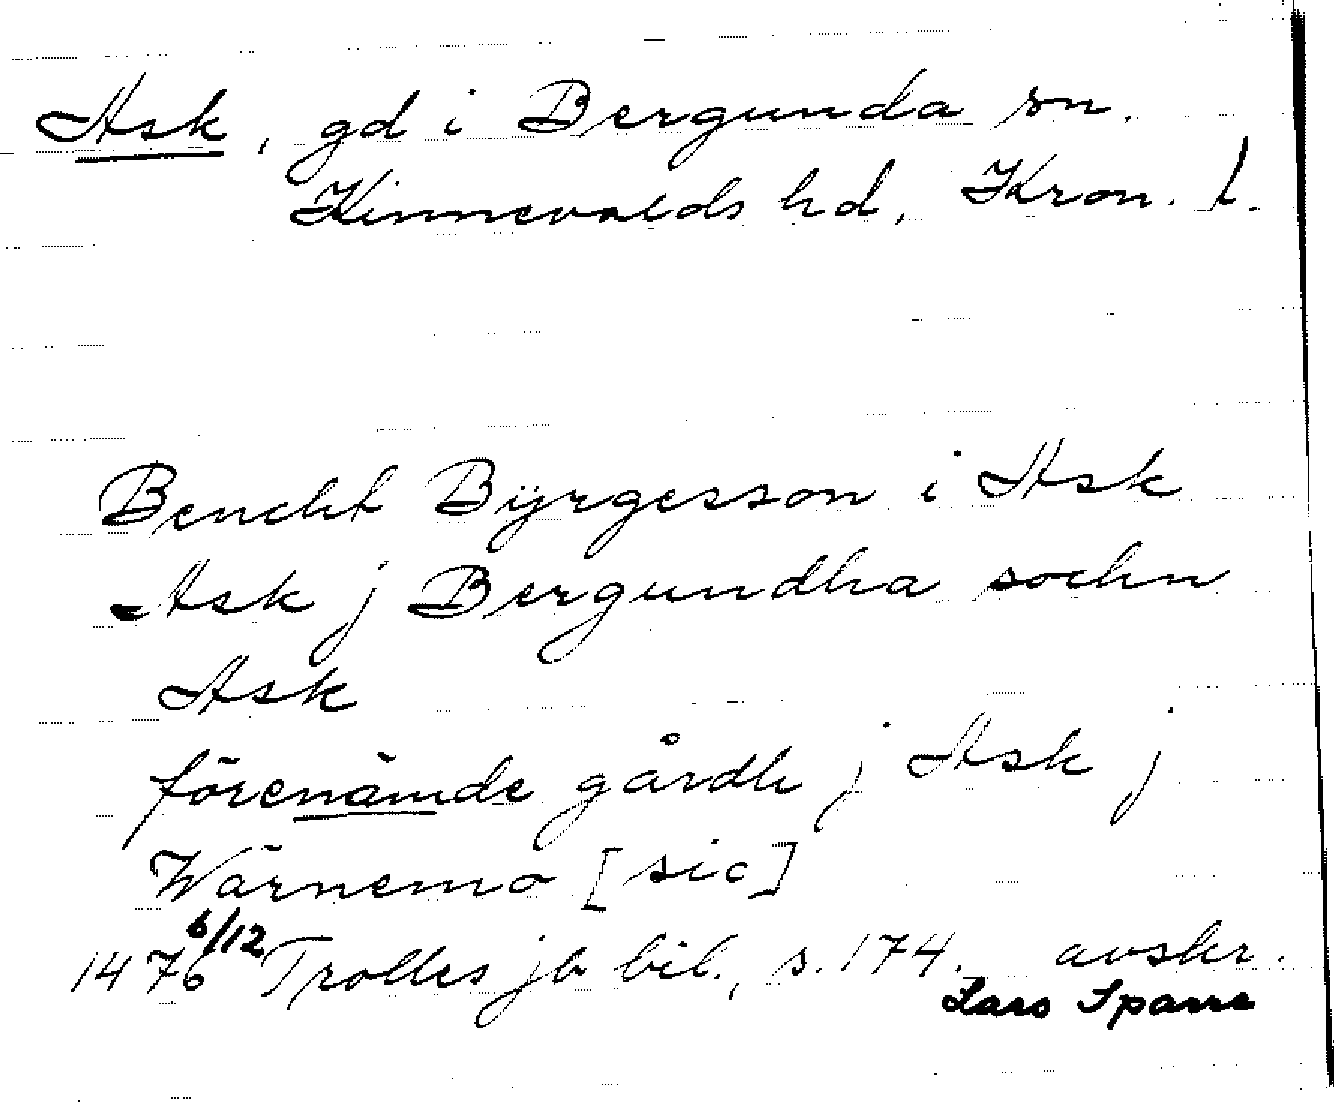 Ask, gd i Bergunda sn.
Kinnevalds hd, Kron. l.
Bencht Byrgesson i Ask
Ask j Bergundha sochn
Ask
förenämde gårdh j Ask j
Wärnemo [sic]
1476 6/12 Trolles jb bil., s. 174. avskr.
Lars Sparre